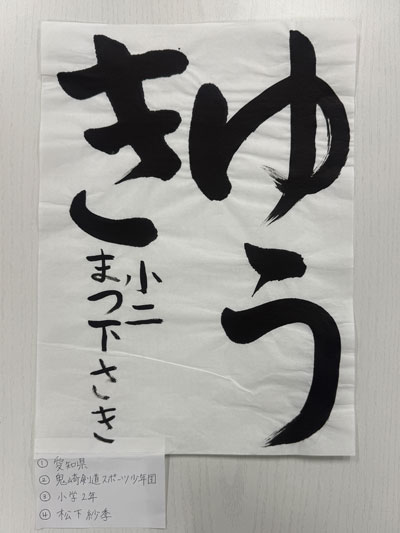 ゆう
き
小二
まつ下さき
① 愛知県
② 鬼崎剣道スポーツ少年団
③ 小学2年
④ 松下紗季